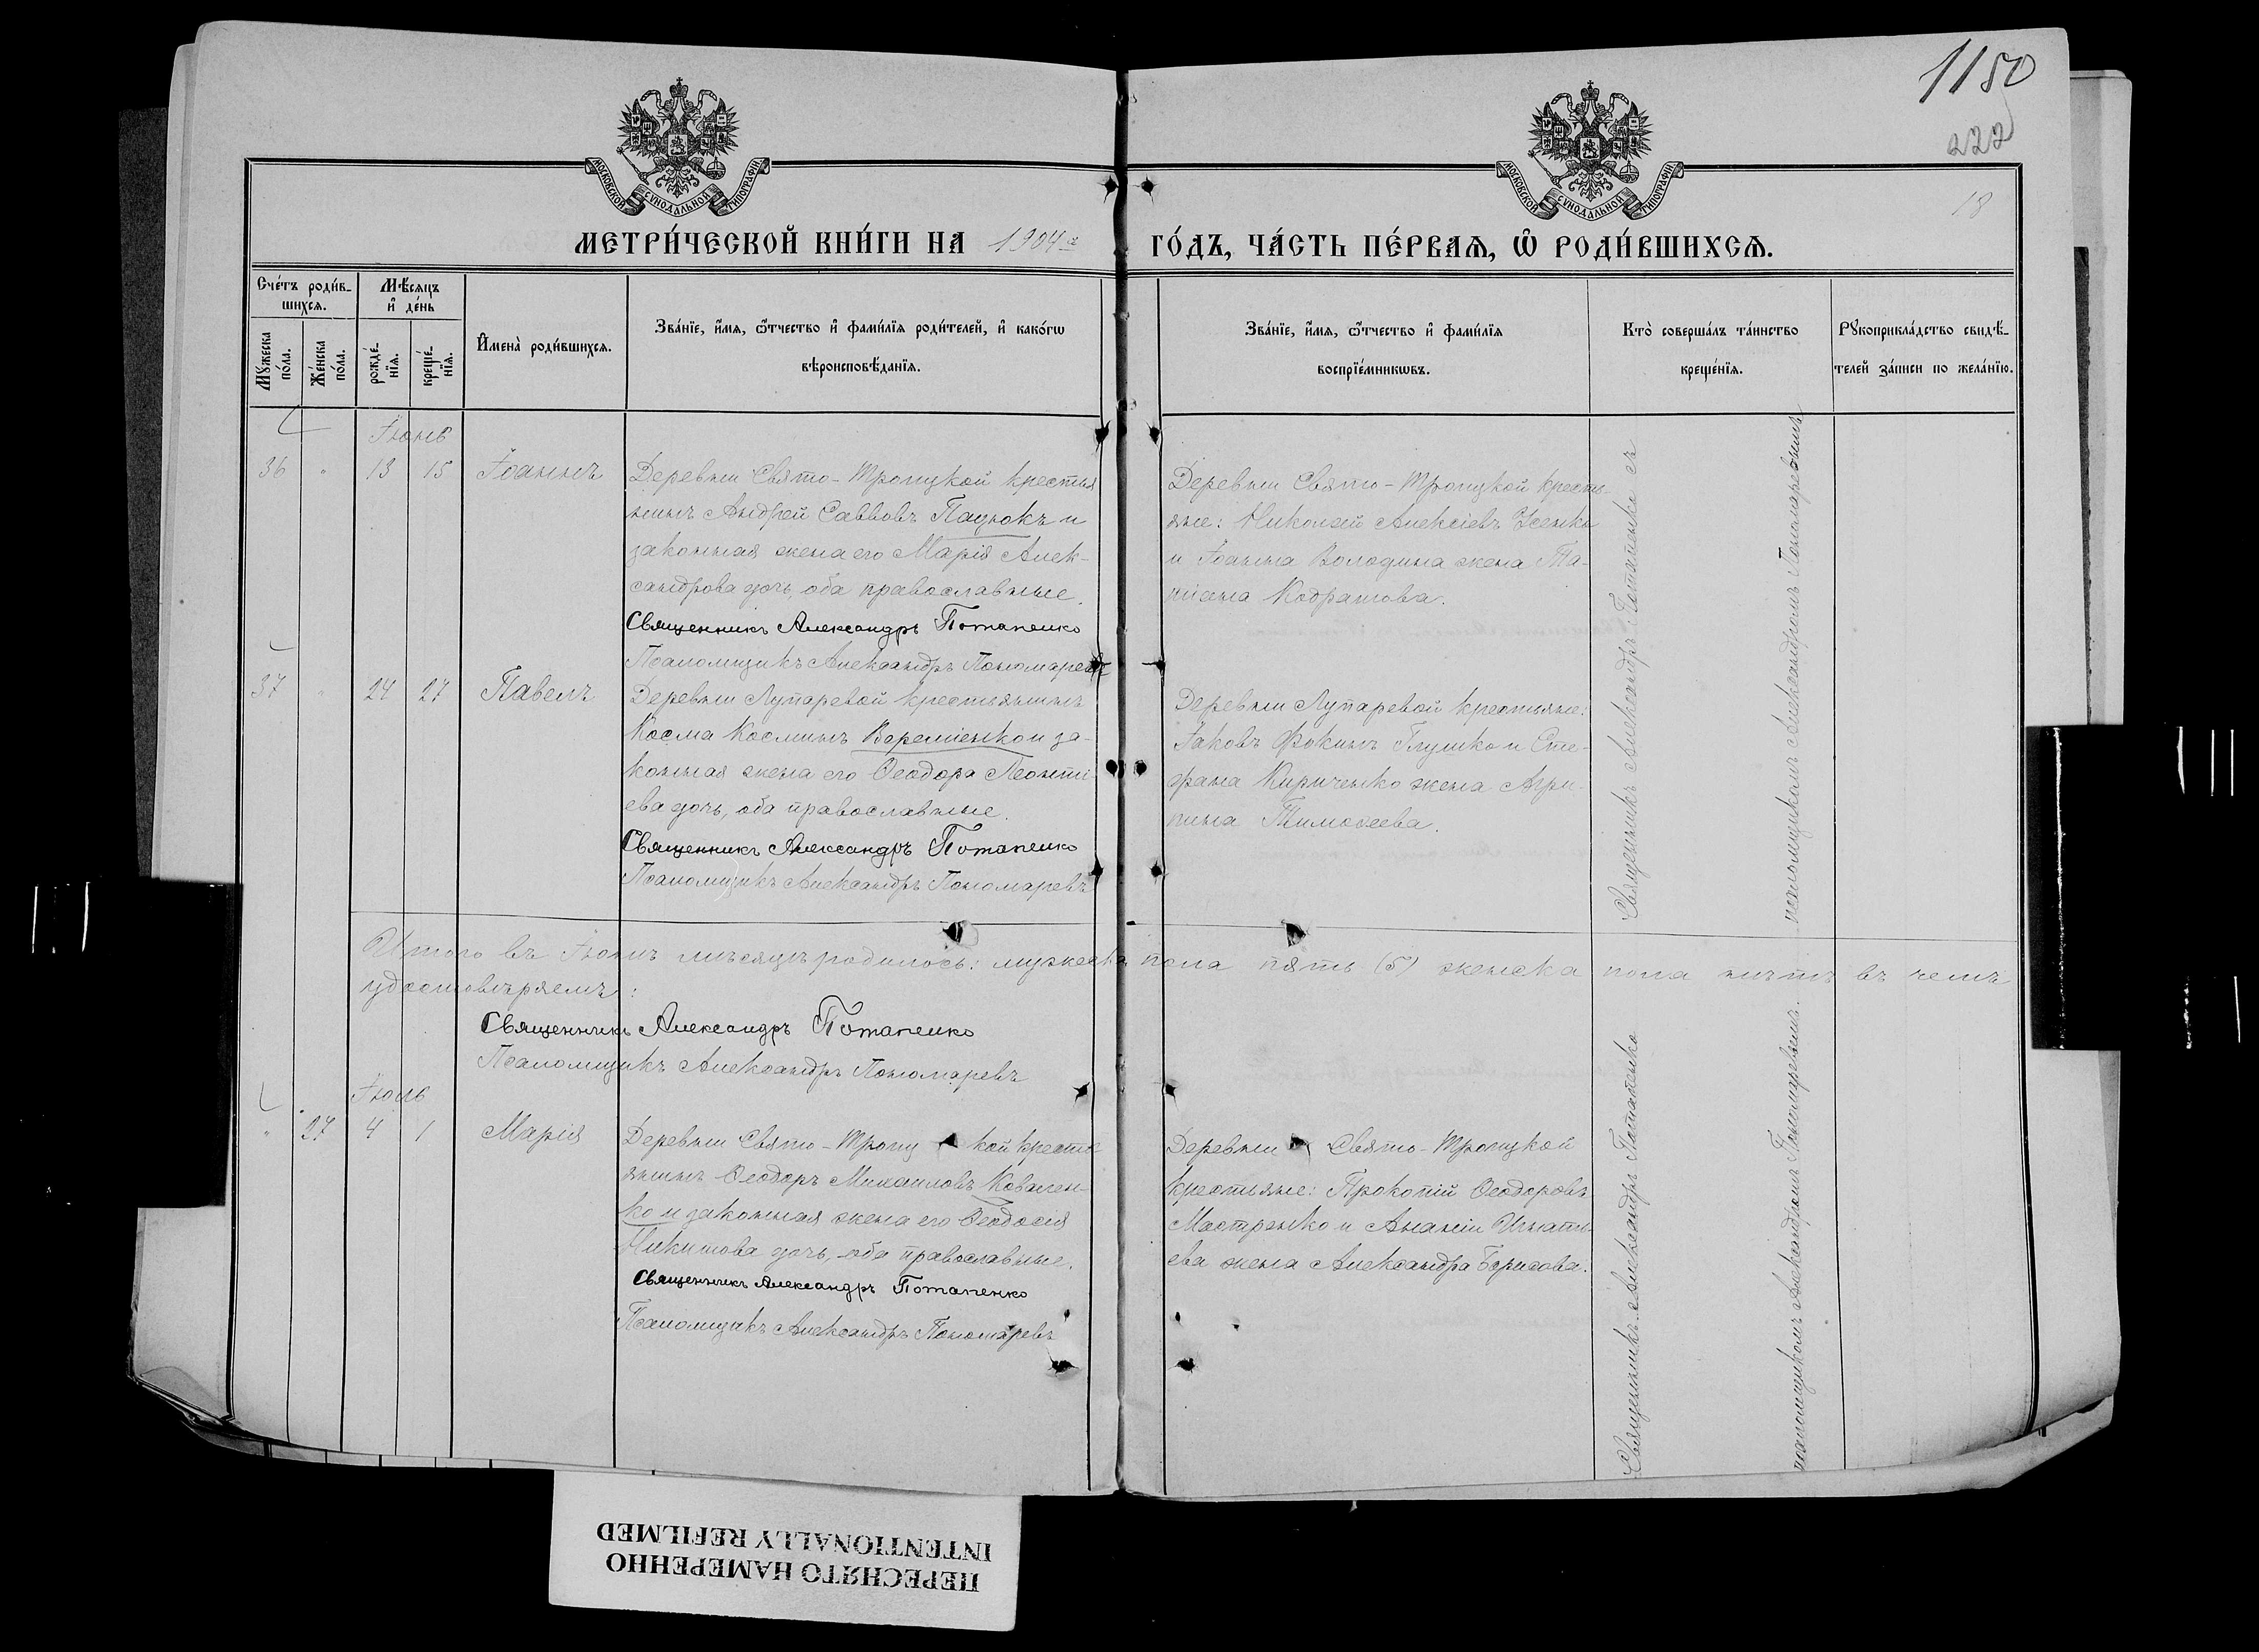 1150
222
18
МОСКОВСКОЙ СѴНОДАЛЬНОЙ ТИПОГРАФІИ
МОСКОВСКОЙ СѴНОДАЛЬНОЙ ТИПОГРАФІИ
МЕТРИ́ЧЕСКОЙ КНИ́ГИ НА 1904й ГО́ДЪ, ЧА́СТЬ ПЕ́РВАѦ, Ѡ҆ РОДИ́ВШИХСѦ.
Сче́тъ роди́в-
шихсѧ.
Мѣ́сѧцъ
и҆ де́нь
Мꙋ́жеска
по́ла.
Же́нска
по́ла.
рожде́-
нїѧ.
креще́-
нїѧ.
И҆мена̀ роди́вшихсѧ.
Зва́нїе, и҆́мѧ, ѻ҆́тчество и҆ фами́лїѧ роди́телей, и҆ како́гѡ
вѣроисповѣ́данїѧ.
Зва́нїе, и҆́мѧ, ѻ҆́тчество и҆ фами́лїѧ
воспрїе́мникѡвъ.
Кто̀ соверша́лъ та́инство
креще́нїѧ.
Рꙋкоприкла́дство свидѣ́-
телей за́писи по жела́нїю.
Іюнь
36 " 13 15 Іоаннъ
Деревни Свято-Троицкой крестья
нинъ Андрей Саввовъ Пацюкъ и
законная жена его Марія Алек-
сандрова дочь, оба православные.
Священникъ Александръ Потапенко
Псаломщикъ Александръ Пономаревъ
Деревни Свято-Троицкой кресть-
яне: Николай Алексіевъ Усенко
и Іоанна Володина жена Та-
тіана Кодратова.
37 " 24 27 Павелъ
Деревни Лупаревой крестьянинъ
Косма Косминъ Веремiенко и за-
конная жена его Ѳеодора Леонті
ева дочь, оба православные.
Священникъ Александръ Потапенко
Псаломщикъ Александръ Пономаревъ
Деревни Лупаревой крестьяне:
Іаковъ Фокинъ Глушко и Сте-
фана Кириченко жена Агри-
пина Тимоѳеева.
Священникъ Александръ Потапенко съ
псаломщикомъ Александромъ Пономаревымъ
Итого въ Іюнѣ мѣсяцѣ родилось: мужеска пола пять (5) женска пола нѣтъ въ чемъ
удостовѣряемъ:
Священникъ Александръ Потапенко
Псаломщикъ Александръ Пономаревъ
Іюль
" 27 4 1 Марія
Деревни Свято-Троиц кой кресть
янинъ Ѳеодоръ Михаиловъ Ковален-
ко и законная жена его Ѳеодосія
Никитова дочь, оба православные.
Священникъ Александръ Потапенко
Псаломщикъ Александръ Пономаревъ
Деревни Свято-Троицкой
крестьяне: Прокопій Ѳеодоровъ
Мастренко и Ананіи Игнать
ева жена Александра Борисова.
Священникъ Александръ Потапенко
псаломщикомъ Александромъ Пономаревымъ.
ПЕРЕСНЯТО НАМЕРЕННО
INTENTIONALLY REFILMED